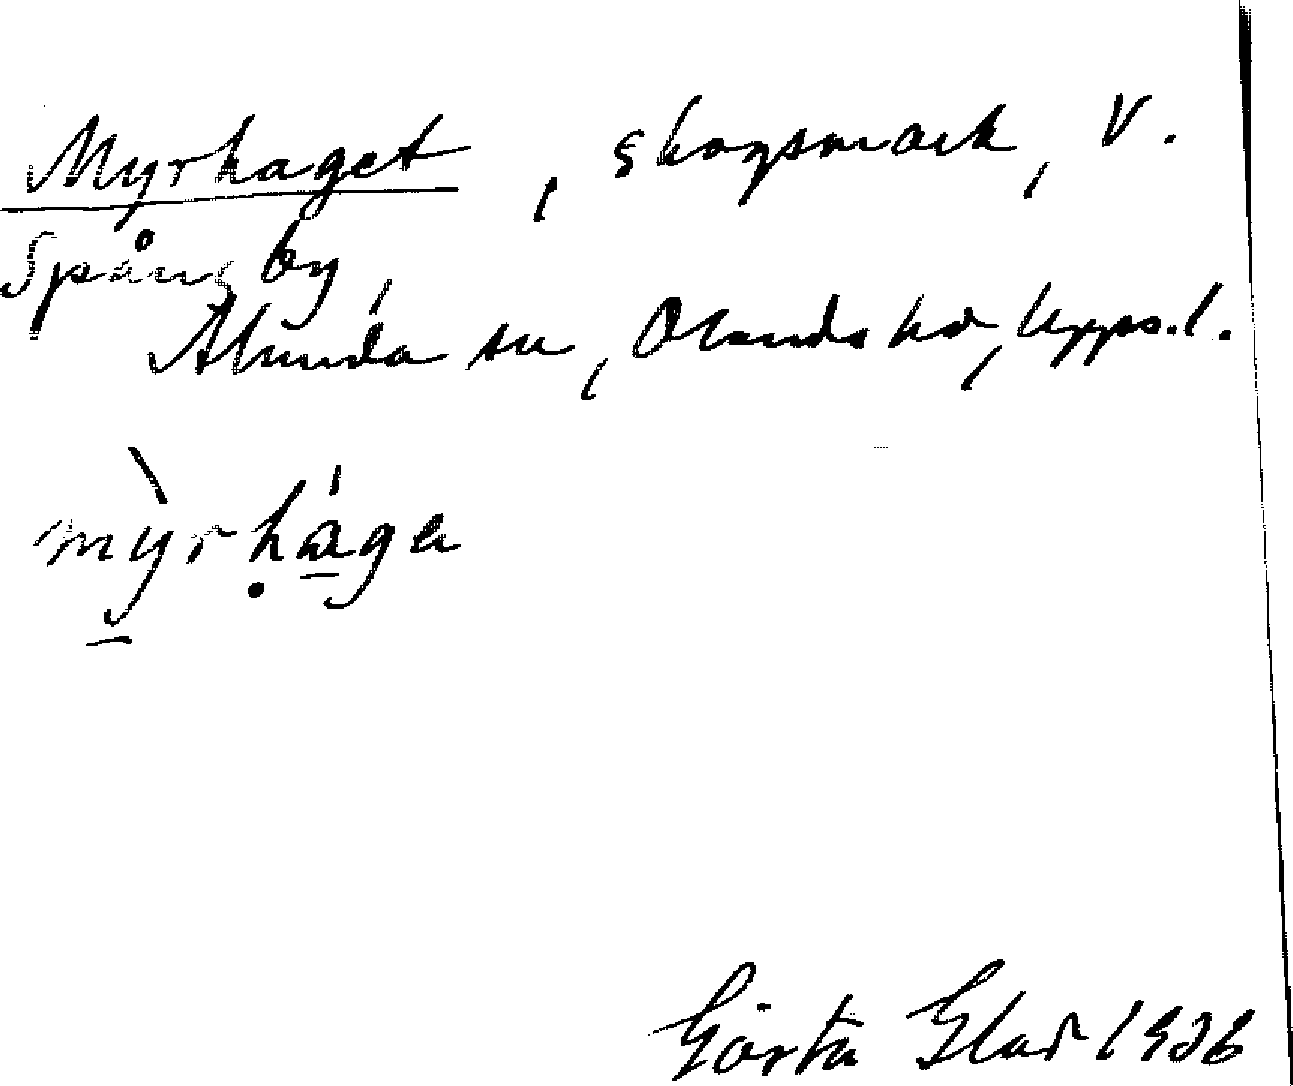 Myrhaget, skogsmark, V.
Spångby,
Alunda sn, Olands hd, Upps.l.
mỳ̱rḥá̱ga
Gösta 1936